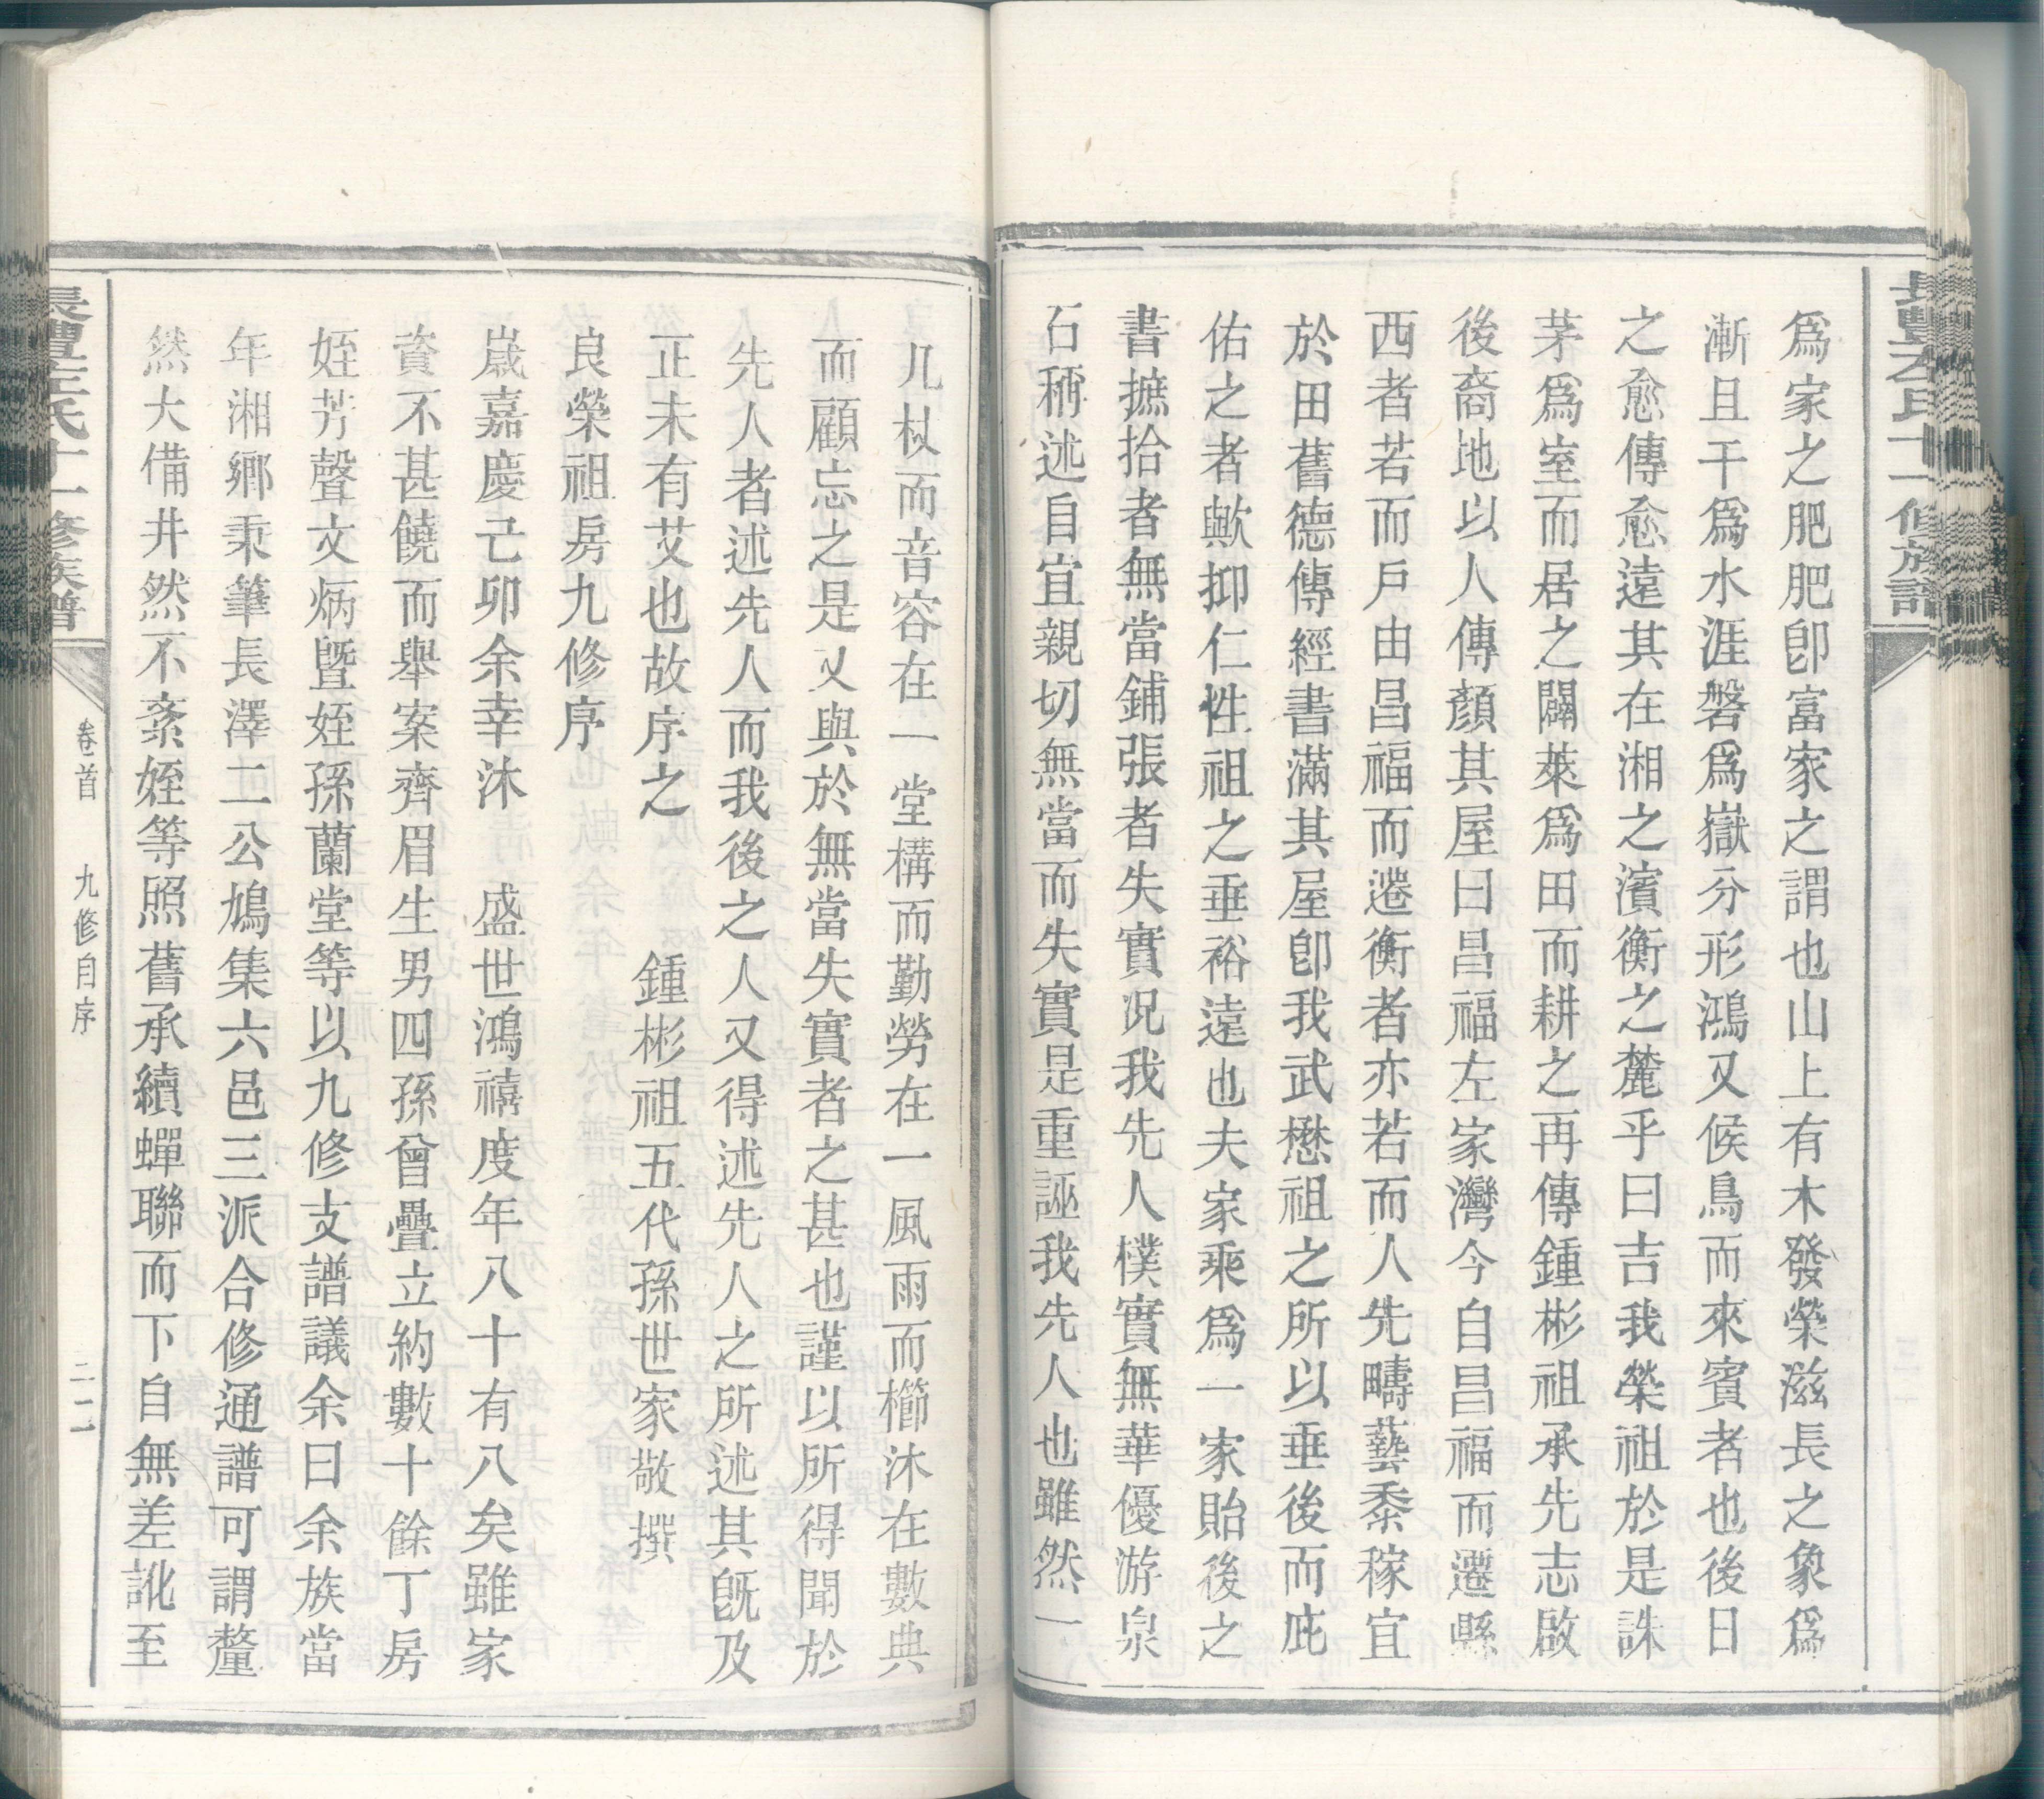 爲家之肥肥卽富家之謂也山上有木發榮滋長之象爲
漸且干爲水涯磐爲嶽分形鴻又候鳥而來賓者也後日
之愈傳愈遠其在湘之濱衡之麓乎曰吉我榮祖於是誅
茅爲室而居之闢萊爲田而耕之再傳鍾彬祖承先志啟
後裔地以人傳顏其屋曰昌福左家灣今自昌福而遷縣
西者若而戶由昌福而遷衡者亦若而人先疇藝黍稼宜
於田舊德傳經書滿其屋卽我武懋祖之所以垂後而庇
佑之者歟抑仁性祖之垂裕遠也夫家乘爲一家貽後之
書摭拾者無當鋪張者失實况我先人樸實無華優游泉
石稱述自宜親切無當而失實是重誣我先人也雖然一
几杖而音容在一堂構而勤勞在一風雨而櫛沐在數典
而顧忘之是又與於無當失實者之甚也謹以所得聞於
先人者述先人而我後之人又得述先人之所述其旣及
正未有艾也故序之 鍾彬祖五代孫世家敬撰
良榮祖房九修序
歲嘉慶己卯余幸沐 盛世鴻禧度年八十有八矣雖家
資不甚饒而舉案齊眉生男四孫曾疊立約數十餘丁房
姪芳聲文炳曁姪孫蘭堂等以九修支譜議余曰余族當
年湘鄉秉筆長澤二公鳩集六邑三派合修通譜可謂釐
然大備井然不紊姪等照舊承續蟬聯而下自無差訛至
卷首 九修自序 二二